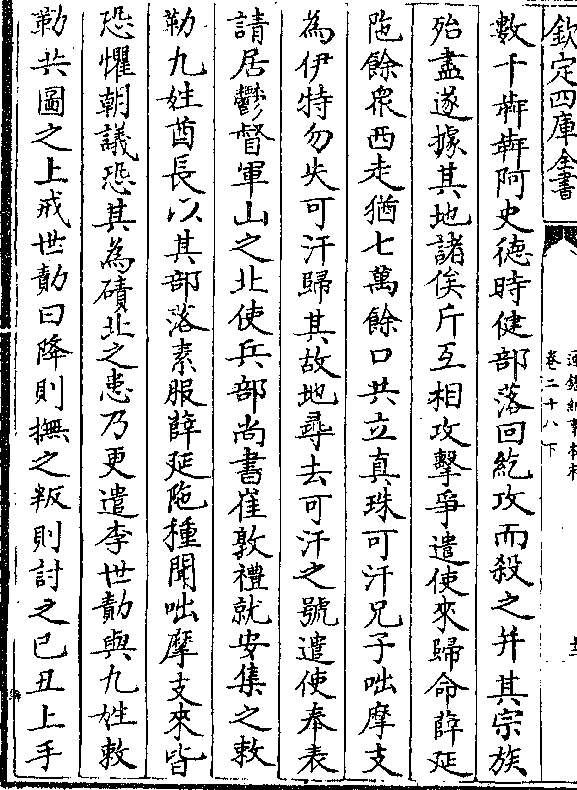 欽定四庫全書
卷二十八下
數千犇犇阿史徳時健部落回紇攻而殺之并其宗族
殆盡遂據其地諸俟斤互相攻擊爭遣使來歸命薛延
陁餘衆西走猶七萬餘口共立真珠可汗兄子咄摩支
為伊特勿失可汗歸其故地尋去可汗之號遣使奉表
請居鬱督軍山之北使兵部尚書崔敦禮就安集之敕
勒九姓酋長以其部落素服薛延陁種聞咄摩支來皆
恐懼朝議恐其為磧北之患乃更遣李世勣與九姓敕
勒共圖之上戒世勣曰降則撫之叛則討之己丑上手